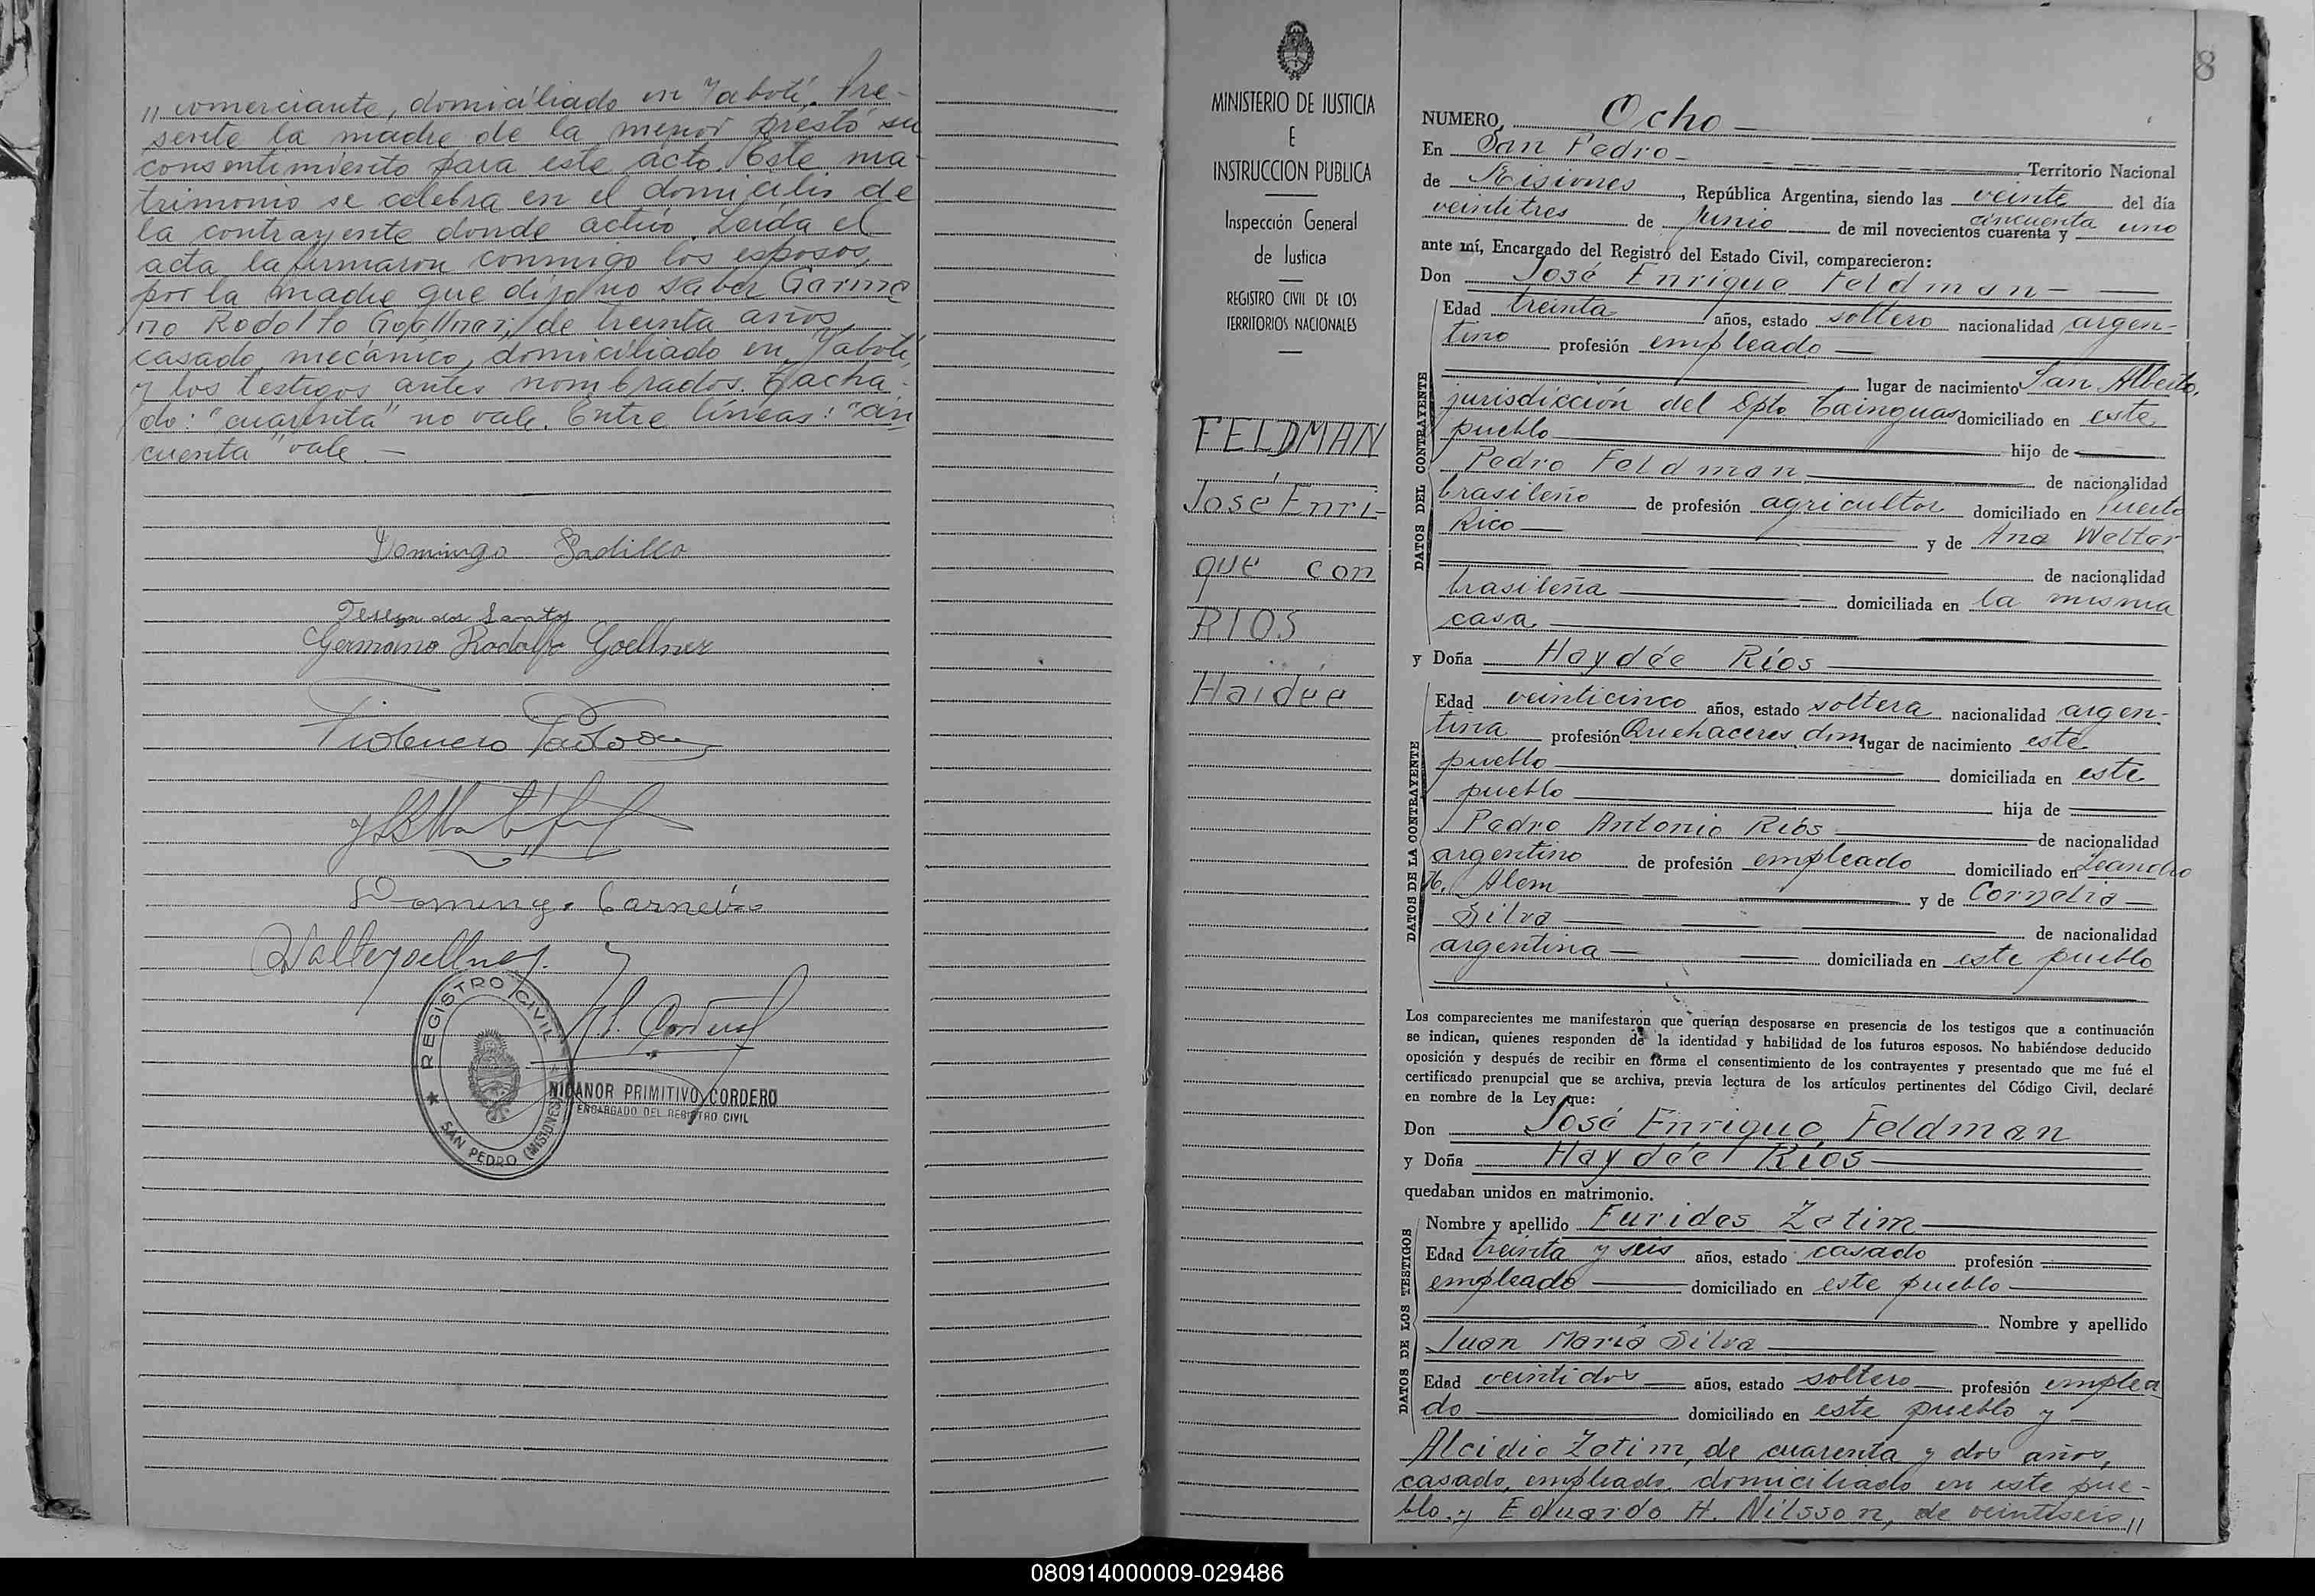 " comerciante, domiciliado en Yabotí. Pre-
sente la madre de la menor prestó su
consentimiento para este acto. Este ma-
trimonio se celebra en el domicilio de
la contrayente donde actúo. Leída el
acta la firmaron conmigo los esposos,
por la madre que dijo no saber Germa
no Rodolfo Goellner, de treinta años
casado, mecánico, domiciliado en Yabotí,
y los testigos antes nombrados. Tacha-
do: "cuarenta" no vale. Entre líneas: "cin
cuenta" vale.—
Domingo Padilla
Teresa dos Santos
Germano Rodolfo Goellner
Domingo Carneiro
Walter Goellner
REGISTRO CIVIL
SAN PEDRO (MISIONES)
NICANOR PRIMITIVO CORDERO
ENCARGADO DEL REGISTRO CIVIL
MINISTERIO DE JUSTICIA
E
INSTRUCCION PUBLICA
Inspección General
de Justicia
REGISTRO CIVIL DE LOS
TERRITORIOS NACIONALES
FELDMAN
José Enri-
que con
RIOS
Haidée
8
NUMERO Ocho
En San Pedro Territorio Nacional
de Misiones, República Argentina, siendo las veinte del día
veintitres de Junio de mil novecientos cuarenta y cincuenta uno
ante mí, Encargado del Registro del Estado Civil, comparecieron:
Don José Enrique Feldman
Edad treinta años, estado soltero nacionalidad argen-
tino profesión empleado
lugar de nacimiento San Alberto,
jurisdicción del Dpto Cainguas domiciliado en este
pueblo hijo de
Pedro Feldman de nacionalidad
brasileño de profesión agricultor domiciliado en Puerto
Rico y de Ana Welter
de nacionalidad
brasileña domiciliada en la misma
casa
DATOS DEL CONTRAYENTE
y Doña Haydée Ríos
Edad veinticinco años, estado soltera nacionalidad argen-
tina profesión Quehaceres dom lugar de nacimiento este
pueblo domiciliada en este
pueblo hija de
Pedro Antonio Ríos de nacionalidad
argentino de profesión empleado domiciliado en Leandro
N. Alem y de Cornelia
Silva de nacionalidad
argentina domiciliada en este pueblo
DATOS DE LA CONTRAYENTE
Los comparecientes me manifestaron que querían desposarse en presencia de los testigos que a continuación
se indican, quienes responden de la identidad y habilidad de los futuros esposos. No habiéndose deducido
oposición y después de recibir en forma el consentimiento de los contrayentes y presentado que me fué el
certificado prenupcial que se archiva, previa lectura de los artículos pertinentes del Código Civil, declaré
en nombre de la Ley que:
Don José Enrique Feldman
y Doña Haydée Ríos
quedaban unidos en matrimonio.
Nombre y apellido Eurides Zetim
Edad treinta y seis años, estado casado profesión
empleado domiciliado en este pueblo
Nombre y apellido
Juan María Silva
Edad veintidos años, estado soltero profesión emplea
do domiciliado en este pueblo y
DATOS DE LOS TESTIGOS
Alcidio Zotim, de cuarenta y dos años,
casado, empleado, domiciliado en este pue-
blo y Eduardo H. Nilsson, de veintiseis "
080914000009-029486